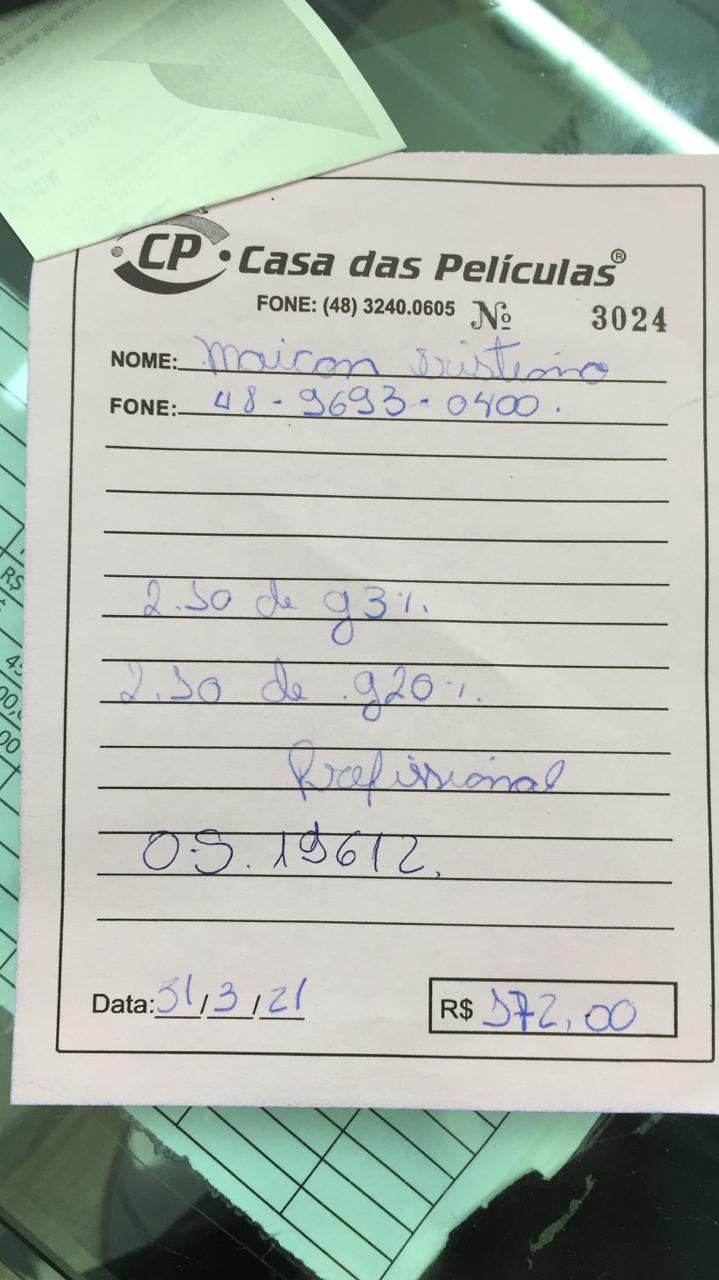 CP • Casa das Películas®
FONE: (48) 3240.0605 Nº 3024
NOME: Maicon
FONE: 48-9693-0400.
2.50 de g3%.
2.50 de g20%.
Profissional
OS. 19612.
Data: 31/3/21 R$ 372,00
R$